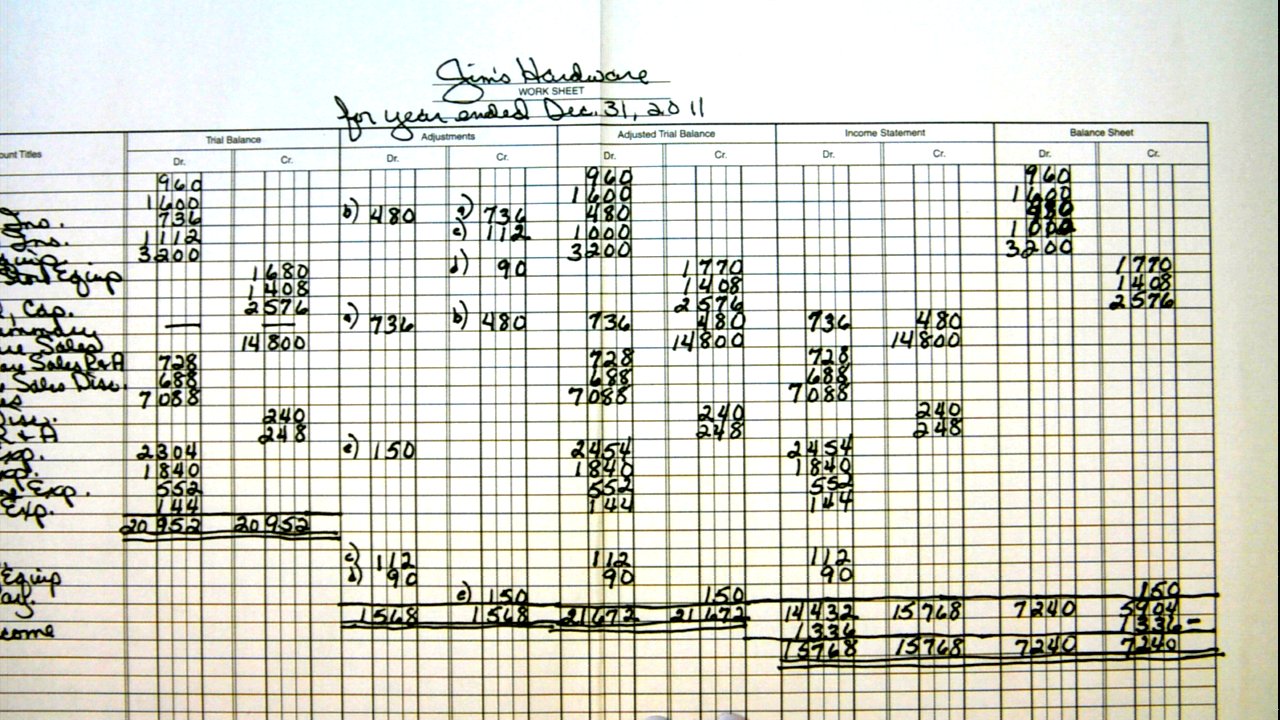 Jim's Hardware
WORK SHEET
for year ended Dec. 31, 2011
Trial Balance Adjustments Adjusted Trial Balance Income Statement Balance Sheet
ount Titles Dr. Cr. Dr. Cr. Dr. Cr. Dr. Cr. Dr. Cr.
960 960 960
1600 1600 1600
Ins. 736 b) 480 a) 736 480 480
Ins. 1112 c) 112 1000 1000
quip. 3200 3200 3200
Store Equip 1680 d) 90 1770 1770
1408 1408 1408
, Cap. 2576 2576 2576
ummary — — a) 736 b) 480 736 480 736 480
are Sales 14800 14800 14800
are Sales R&A 728 728 728
e Sales Disc. 688 688 688
es 7088 7088 7088
Disc. 240 240 240
R & A 248 248 248
Exp. 2304 e) 150 2454 2454
xp. 1840 1840 1840
Exp. 552 552 552
Exp. 144 144 144
20952 20952
c) 112 112 112
Equip d) 90 90 90
ay. e) 150 150 150
1568 1568 21672 21672 14432 15768 7240 5904
come 1336 1336 -
15768 15768 7240 7240